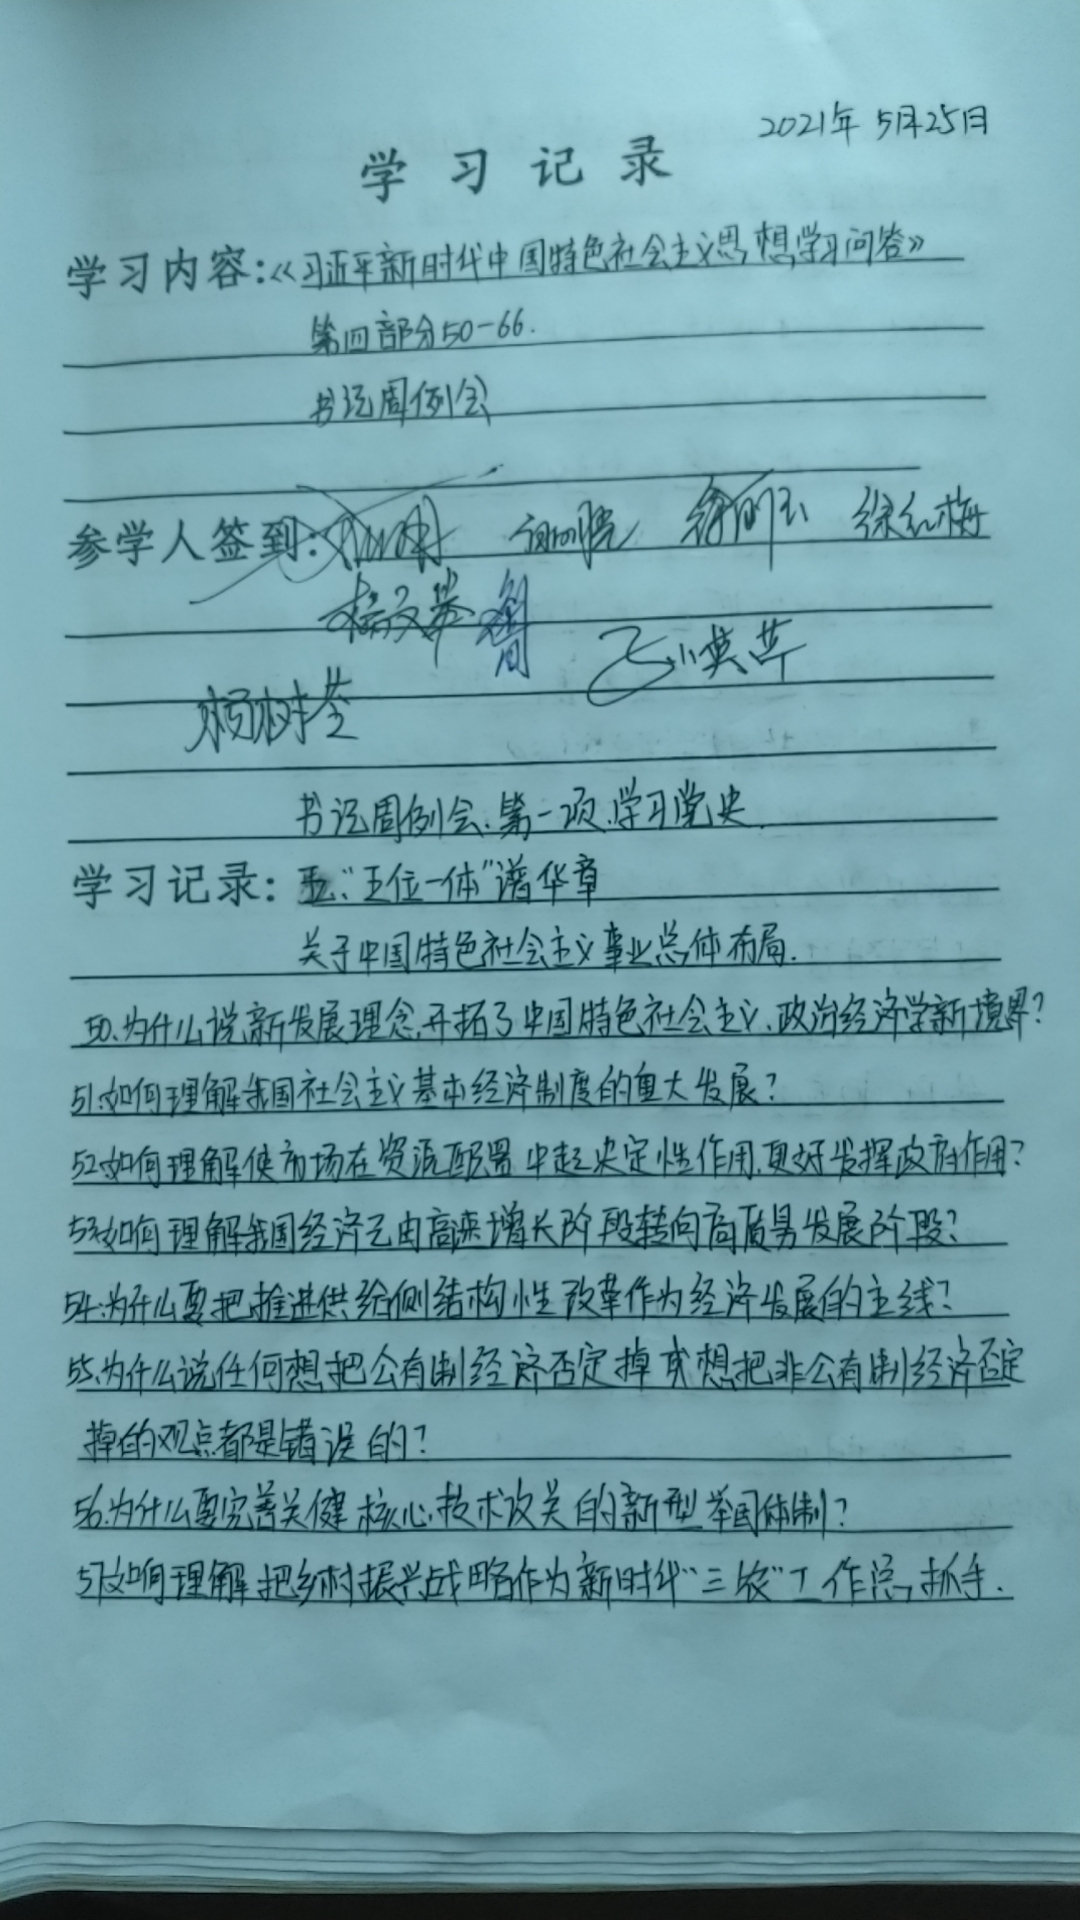 2021年5月25日
学习记录
学习内容:《习近平新时代中国特色社会主义思想学习问答》
第四部分50-66.
书记周例会
参学人签到: 徐红梅
杨文举
孙英芹
杨树荃
书记周例会.第一项.学习党史.
学习记录: 五.“五位一体”谱华章
关于中国特色社会主义事业总体布局.
50.为什么说新发展理念开拓了中国特色社会主义、政治经济学新境界?
51.如何理解我国社会主义基本经济制度的重大发展?
52.如何理解使市场在资源配置中起决定性作用.更好发挥政府作用?
53.如何理解我国经济已由高速增长阶段转向高质量发展阶段?
54.为什么要把推进供给侧结构性改革作为经济发展的主线?
55.为什么说任何想把公有制经济否定掉或想把非公有制经济否定
掉的观点都是错误的?
56.为什么要完善关健核心技术攻关的新型举国体制?
57.如何理解把乡村振兴战略作为新时代“三农”工作总抓手.